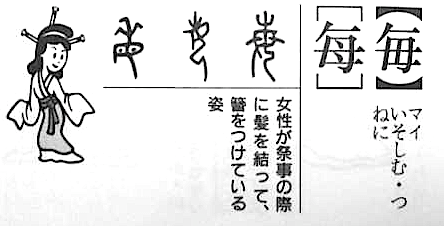 【毎】
[每]
マイ
いそしむ・つ
ねに
女性が祭事の際
に髪を結って、
簪をつけている
姿